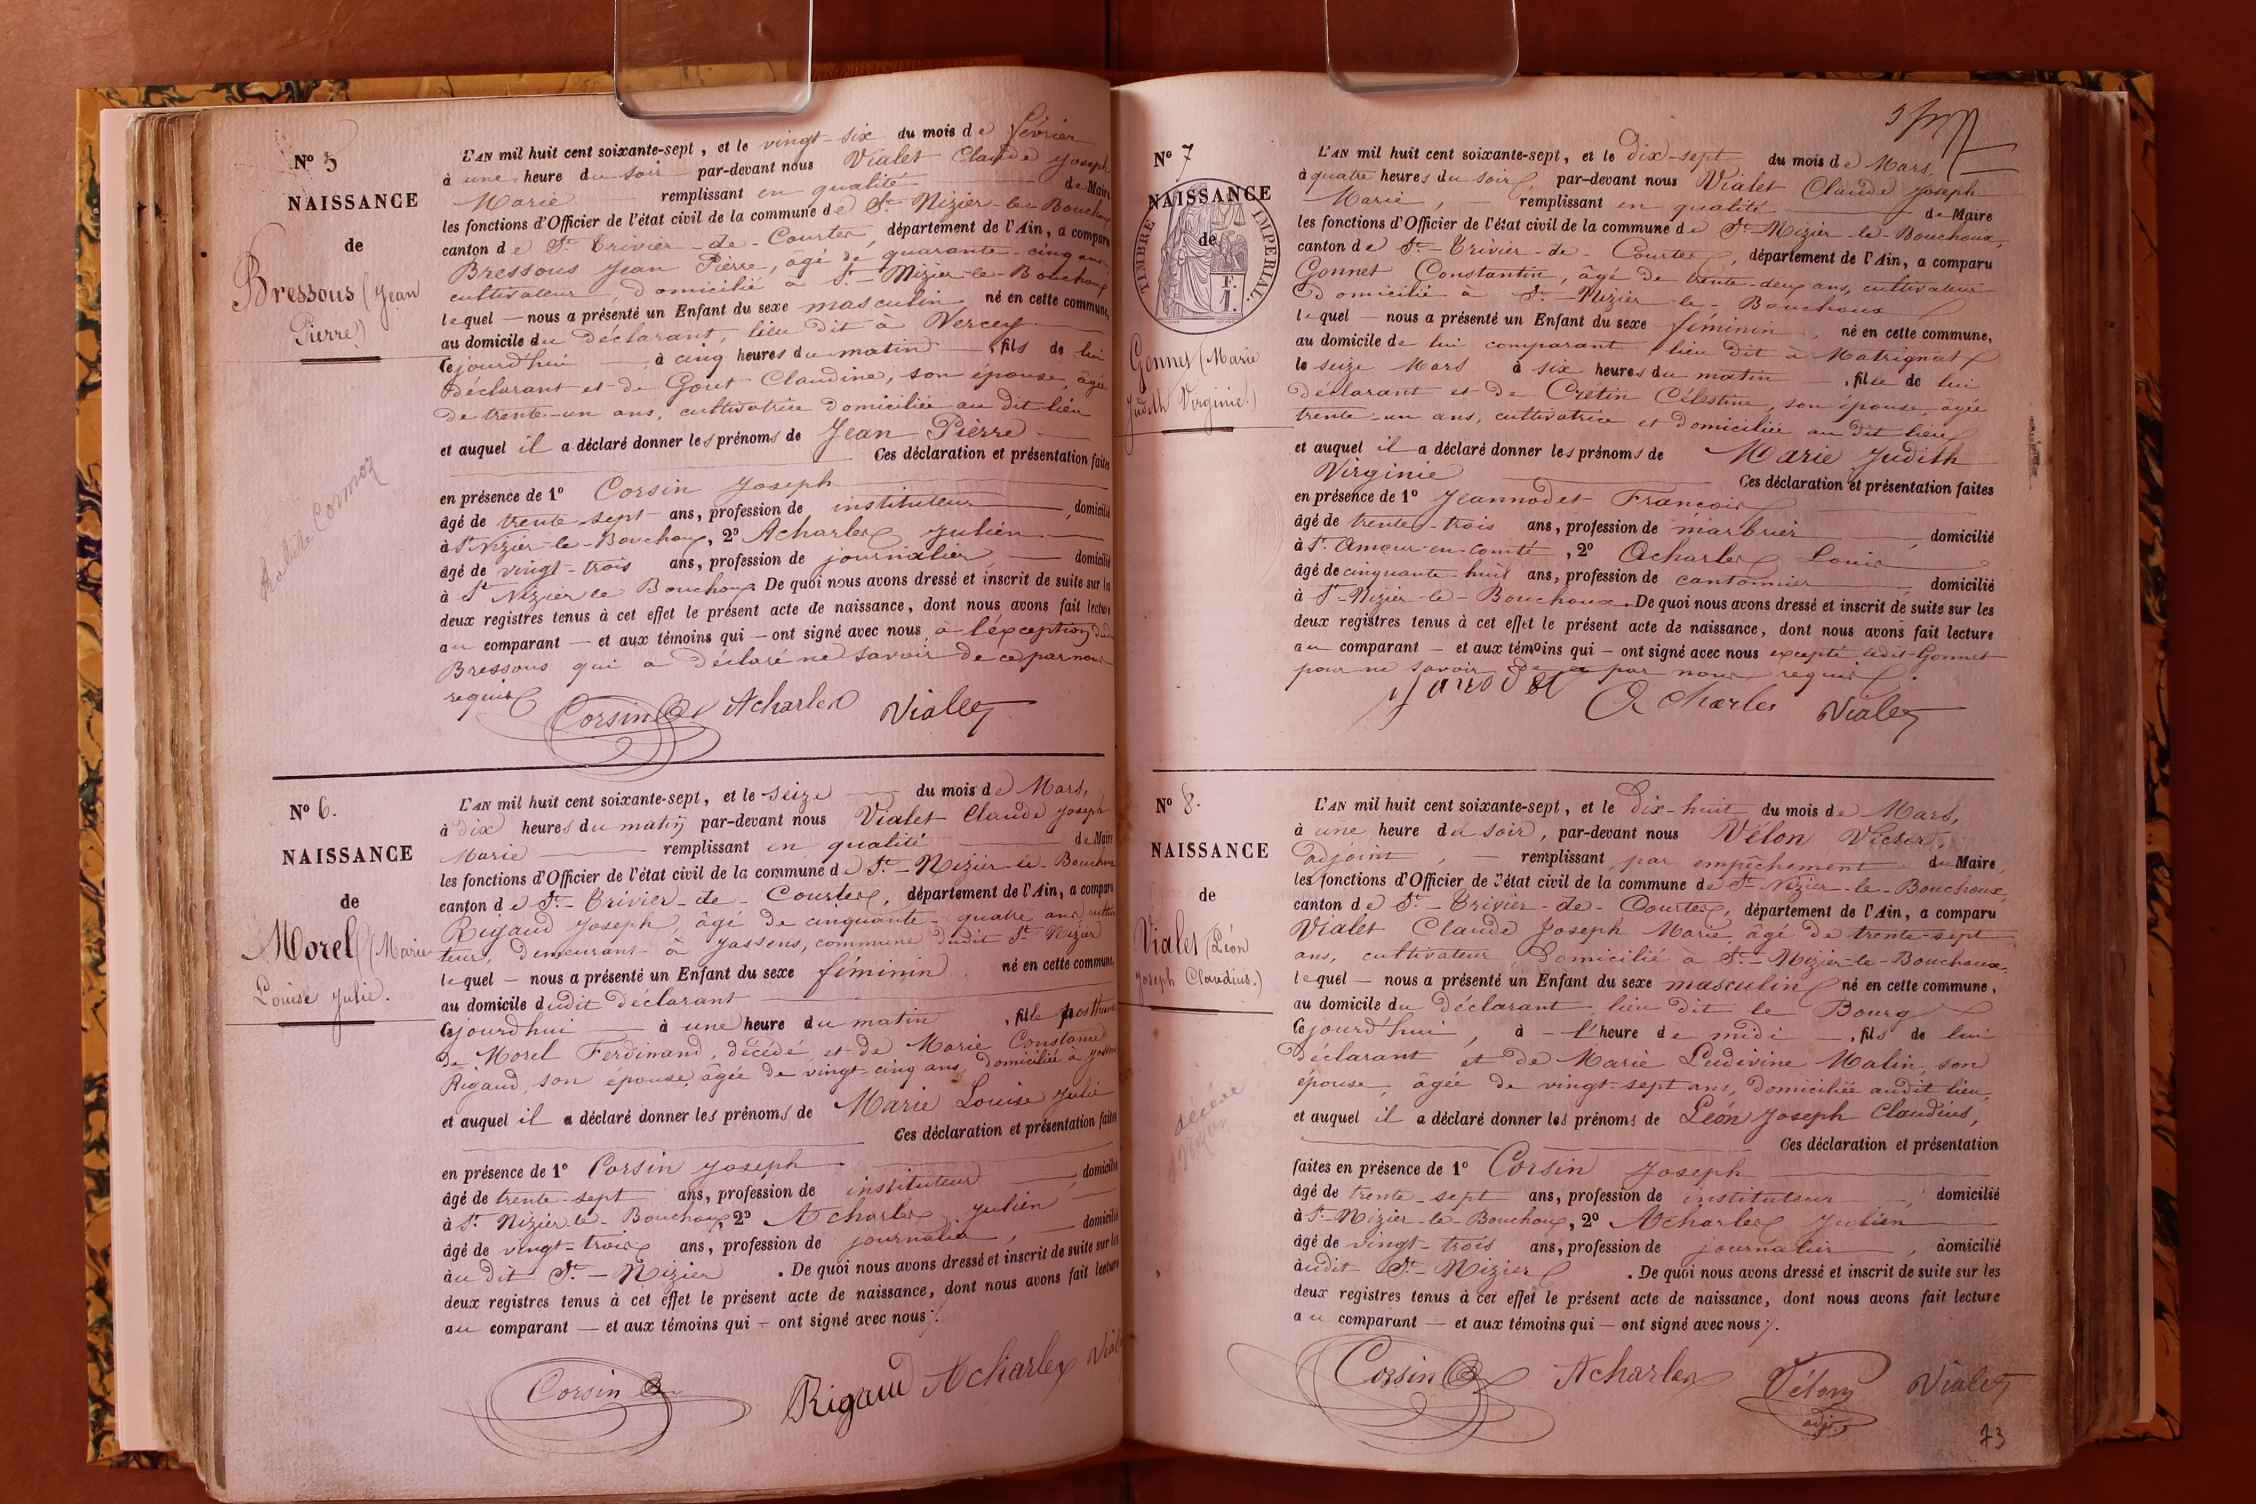 N° 5
NAISSANCE
de
Bressous (Jean
Pierre)
habite Cormoz
L'AN mil huit cent soixante-sept, et le vingt-six du mois de février
à une heure du soir par-devant nous Vialet Claude Joseph
Marie remplissant en qualité de Maire
les fonctions d'Officier de l'état civil de la commune de St-Nizier-le-Bouchoux
canton de St-Trivier-de-Courtes, département de l'Ain, a comparu
Bressous Jean Pierre, âgé de quarante-cinq ans,
cultivateur, domicilié à St-Nizier-le-Bouchoux
lequel — nous a présenté un Enfant du sexe masculin né en cette commune,
au domicile du déclarant, lieu dit à Vercey
Cejourd'hui à cinq heures du matin, fils de lui
déclarant et de Goret Claudine, son épouse, âgée
de trente-un ans, cultivatrice domiciliée au dit lieu
et auquel il a déclaré donner les prénoms de Jean Pierre
Ces déclaration et présentation faites
en présence de 1° Corsin Joseph
âgé de trente-sept ans, profession de instituteur, domicilié
à St Nizier-le-Bouchoux, 2° Acharles Julien
âgé de vingt-trois ans, profession de journalier, domicilié
à St Nizier le Bouchoux. De quoi nous avons dressé et inscrit de suite sur les
deux registres tenus à cet effet le présent acte de naissance, dont nous avons fait lecture
au comparant — et aux témoins qui — ont signé avec nous, à l'exception dudit
Bressous qui a déclaré ne savoir de ce par nous
requis
Corsin Acharles Vialet
N° 6.
NAISSANCE
de
Morel (Marie
Louise Julie).
L'AN mil huit cent soixante-sept, et le seize du mois de Mars,
à dix heures du matin par-devant nous Vialet Claude Joseph
Marie remplissant en qualité de Maire
les fonctions d'Officier de l'état civil de la commune de St-Nizier-le-Bouchoux
canton de St-Trivier-de-Courtes, département de l'Ain, a comparu
Rigaud Joseph, âgé de cinquante-quatre ans, cultiva
teur, demeurant à Jassens, commune dudit St Nizier
lequel — nous a présenté un Enfant du sexe féminin né en cette commune,
au domicile dudit déclarant
Cejourd'hui à une heure du matin, fille posthume
de Morel Ferdinand, décédé, et de Marie Constance
Rigaud, son épouse, âgée de vingt-cinq ans, domiciliée à Jassens
et auquel il a déclaré donner les prénoms de Marie Louise Julie
Ces déclaration et présentation faites
en présence de 1° Corsin Joseph
âgé de trente-sept ans, profession de instituteur, domicilié
à St Nizier-le-Bouchoux, 2° Acharles Julien
âgé de vingt-trois ans, profession de journalier, domicilié
au dit St-Nizier. De quoi nous avons dressé et inscrit de suite sur les
deux registres tenus à cet effet le présent acte de naissance, dont nous avons fait lecture
au comparant — et aux témoins qui — ont signé avec nous.
Corsin Rigaud Acharles Vialet
N° 7
NAISSANCE
de
TIMBRE IMPERIAL.
F.
1.
Gonnet (Marie
Judith Virginie.)
L'AN mil huit cent soixante-sept, et le dix-sept du mois de Mars,
à quatre heures du soir, par-devant nous Vialet Claude Joseph
Marie, — remplissant en qualité de Maire
les fonctions d'Officier de l'état civil de la commune de St-Nizier-le-Bouchoux,
canton de St-Trivier-de-Courtes, département de l'Ain, a comparu
Gonnet Constantin, âgé de trente-deux ans, cultivateur
domicilié à St-Nizier-le-Bouchoux
lequel — nous a présenté un Enfant du sexe féminin, né en cette commune,
au domicile de lui comparant, lieu dit à Matrignat
le seize Mars à six heures du matin, fille de lui
déclarant et de Crétin Célestine, son épouse, âgée
trente-un ans, cultivatrice et domiciliée au dit lieu
et auquel il a déclaré donner les prénoms de Marie Judith
Virginie Ces déclaration et présentation faites
en présence de 1° Jeannodet François
âgé de trente-trois ans, profession de marbrier, domicilié
à St-Amour-en-Comté, 2° Acharles Louis
âgé de cinquante-huit ans, profession de cantonnier, domicilié
à St-Nizier-le-Bouchoux. De quoi nous avons dressé et inscrit de suite sur les
deux registres tenus à cet effet le présent acte de naissance, dont nous avons fait lecture
au comparant — et aux témoins qui — ont signé avec nous excepté ledit Gonnet
pour ne savoir de ce par nous requis.
Acharles Vialet
N° 8.
NAISSANCE
de
Vialet (Léon
Joseph Claudius.)
décédé
L'AN mil huit cent soixante-sept, et le dix-huit du mois de Mars,
à une heure du soir, par-devant nous Vélon Victor,
adjoint, — remplissant par empêchement du Maire,
les fonctions d'Officier de l'état civil de la commune de St-Nizier-le-Bouchoux,
canton de St-Trivier-de-Courtes, département de l'Ain, a comparu
Vialet Claude Joseph Marie, âgé de trente-sept
ans, cultivateur, domicilié à St-Nizier-le-Bouchoux,
lequel — nous a présenté un Enfant du sexe masculin né en cette commune,
au domicile du déclarant lieu dit le Bourg
Cejourd'hui, à — l'heure de midi —, fils de lui
déclarant et de Marie Ludivine Malin, son
épouse, âgée de vingt-sept ans, domiciliée audit lieu,
et auquel il a déclaré donner les prénoms de Léon Joseph Claudius,
Ces déclaration et présentation
faites en présence de 1° Corsin Joseph
âgé de trente-sept ans, profession de instituteur, domicilié
à St-Nizier-le-Bouchoux, 2° Acharles Julien
âgé de vingt-trois ans, profession de journalier, domicilié
audit St-Nizier. De quoi nous avons dressé et inscrit de suite sur les
deux registres tenus à cet effet le présent acte de naissance, dont nous avons fait lecture
au comparant — et aux témoins qui — ont signé avec nous.
Corsin Acharles Vélon Vialet
adj.
73